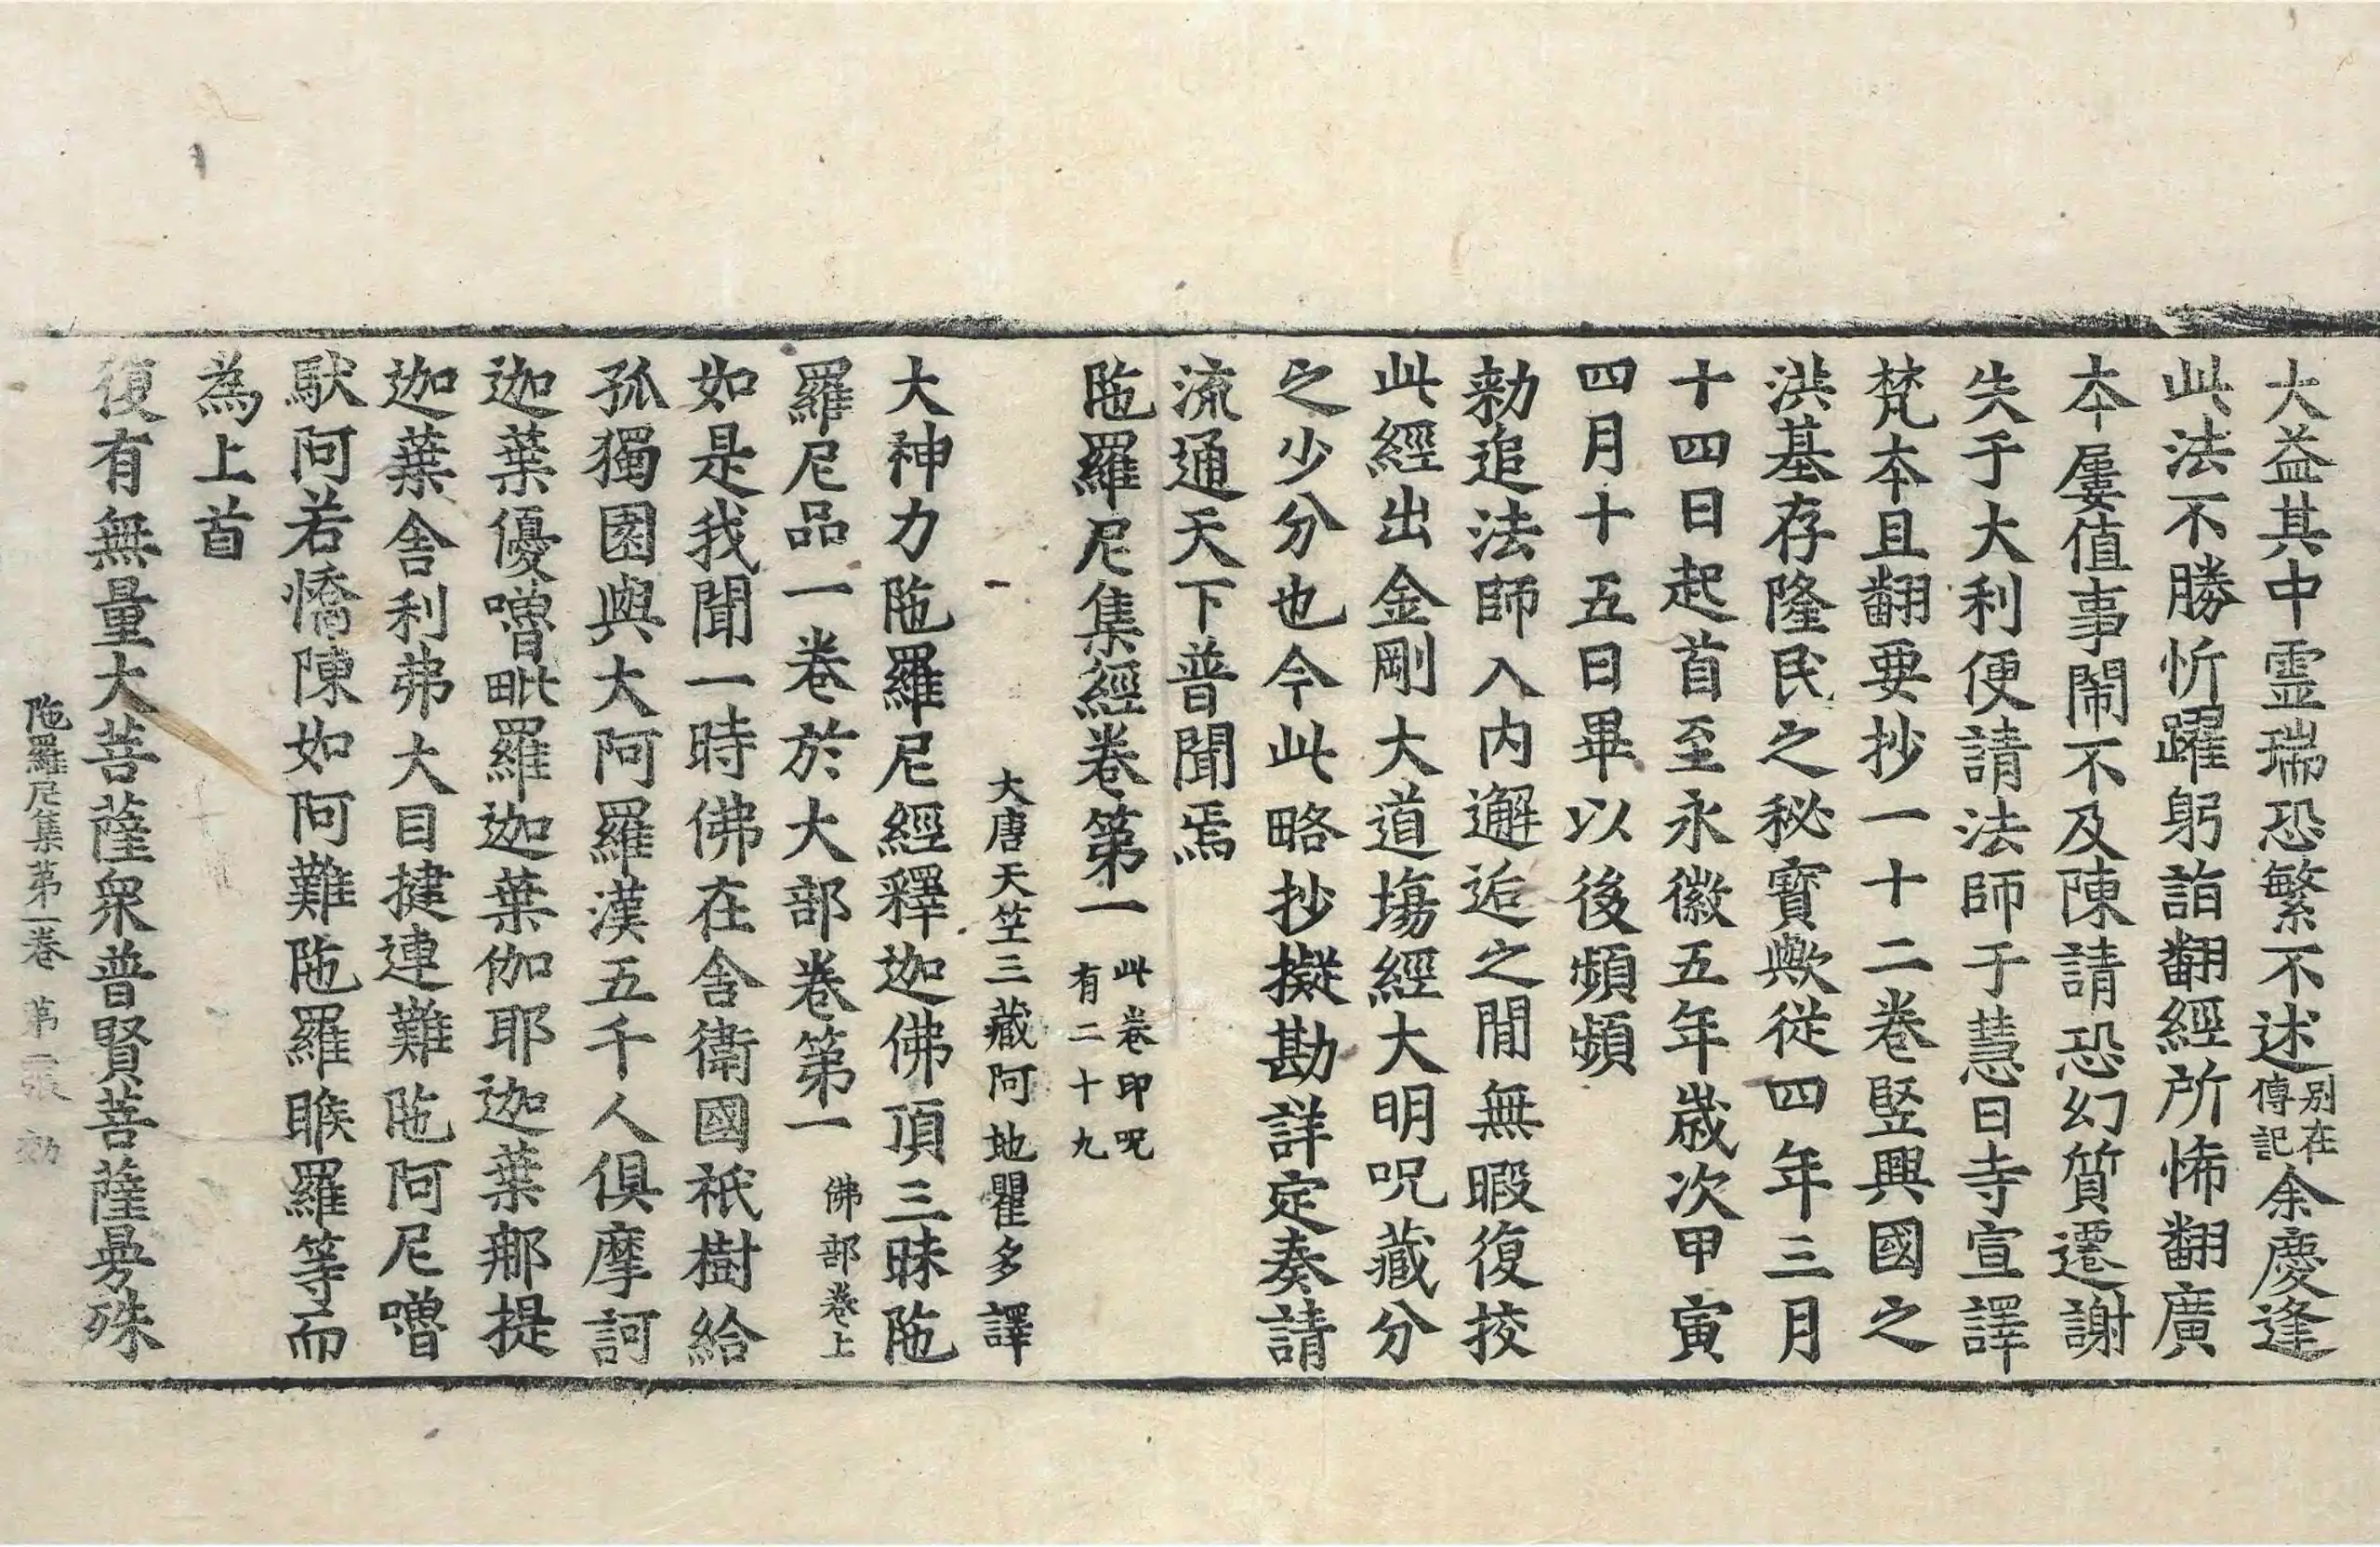 大益其中霊瑞恐繁不述別在傳記余慶逢
此法不勝忻躍躬詣翻經所悕翻廣
本屢值事鬧不及陳請恐幻質遷謝
失于大利便請法師于慧日寺宣譯
梵本且翻要抄一十二卷竪興國之
洪基存隆民之秘寳歟從四年三月
十四日起首至永徽五年歲次甲寅
四月十五日畢以後頻頻
勑追法師入内邂逅之閒無暇復挍
此經出金剛大道場經大明呪藏分
之少分也今此略抄擬勘詳定奏請
流通天下普聞焉
陁羅尼集經卷第一 此卷印呪有二十九
大唐天笁三藏阿地瞿多譯
大神力陁羅尼經釋迦佛頂三昧陁
羅尼品一卷於大部卷第一 佛部卷上
如是我聞一時佛在舍衛國祇樹給
孤獨園與大阿羅漢五千人俱摩訶
迦葉優嚕毗羅迦葉伽耶迦葉那提
迦葉舍利弗大目揵連難陁阿尼嚕
馱阿若憍陳如阿難陁羅睺羅等而
為上首
復有無量大菩薩衆普賢菩薩曼殊
陁羅尼集第一卷 第二張 効